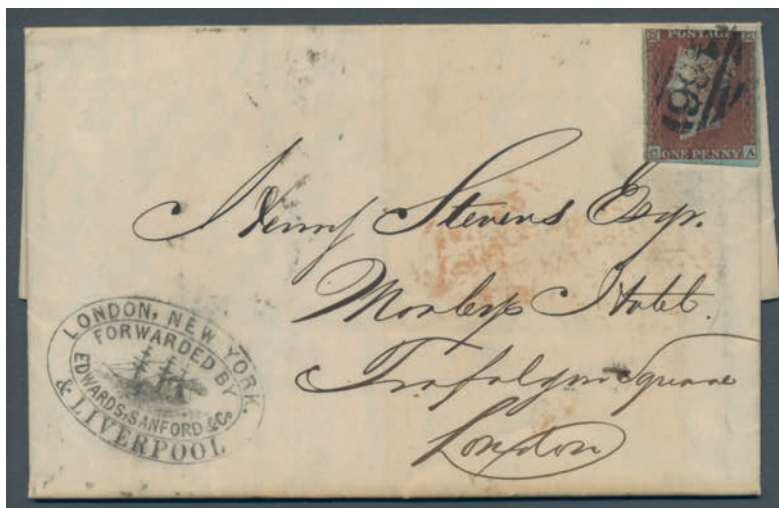 POSTAGE
66
C A
ONE PENNY
Henry Stevens Esqr.
Morleys Hotel.
Trafalgar Square
London
LONDON, NEW YORK,
FORWARDED BY
EDWARDS, SANFORD & Co
& LIVERPOOL